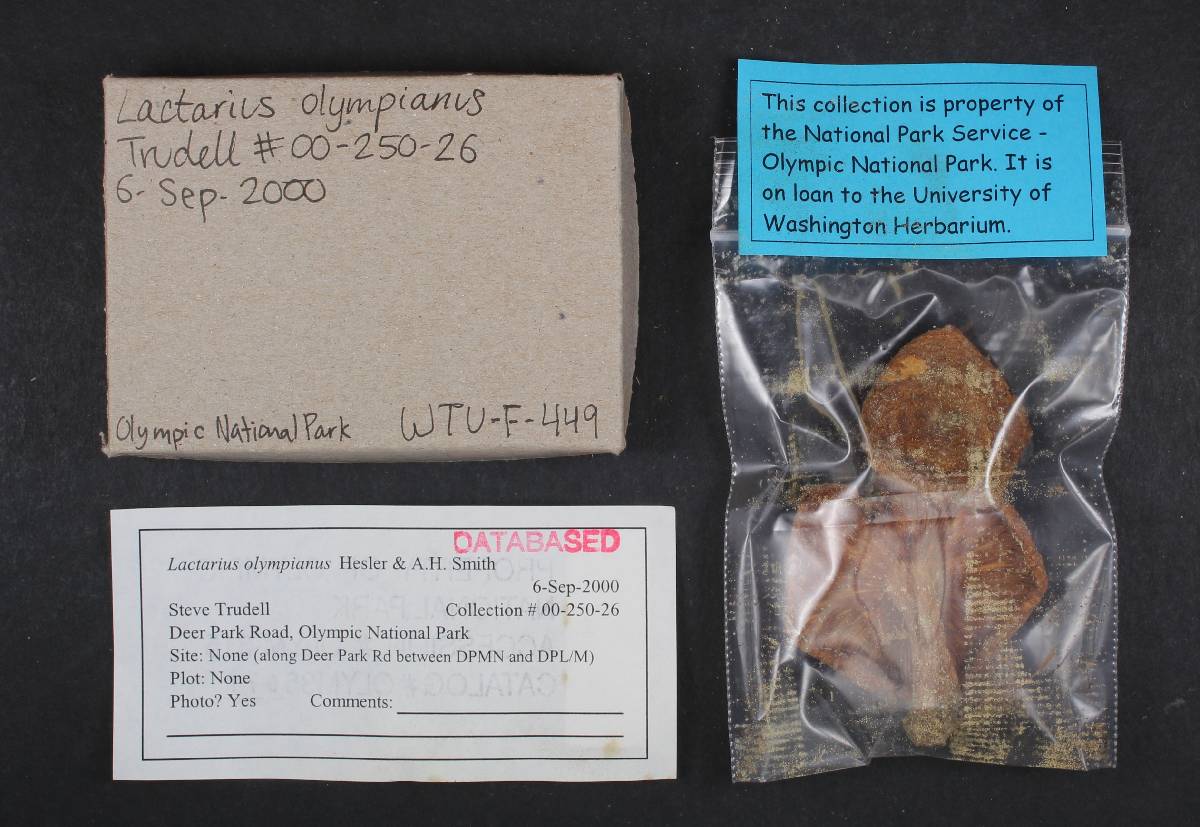 Lactarius olympianus
Trudell # 00-250-26
6-Sep-2000
Olympic National Park WTU-F-449
This collection is property of
the National Park Service -
Olympic National Park. It is
on loan to the University of
Washington Herbarium.
DATABASED
Lactarius olympianus Hesler & A.H. Smith
6-Sep-2000
Steve Trudell Collection # 00-250-26
Deer Park Road, Olympic National Park
Site: None (along Deer Park Rd between DPMN and DPL/M)
Plot: None
Photo? Yes Comments: